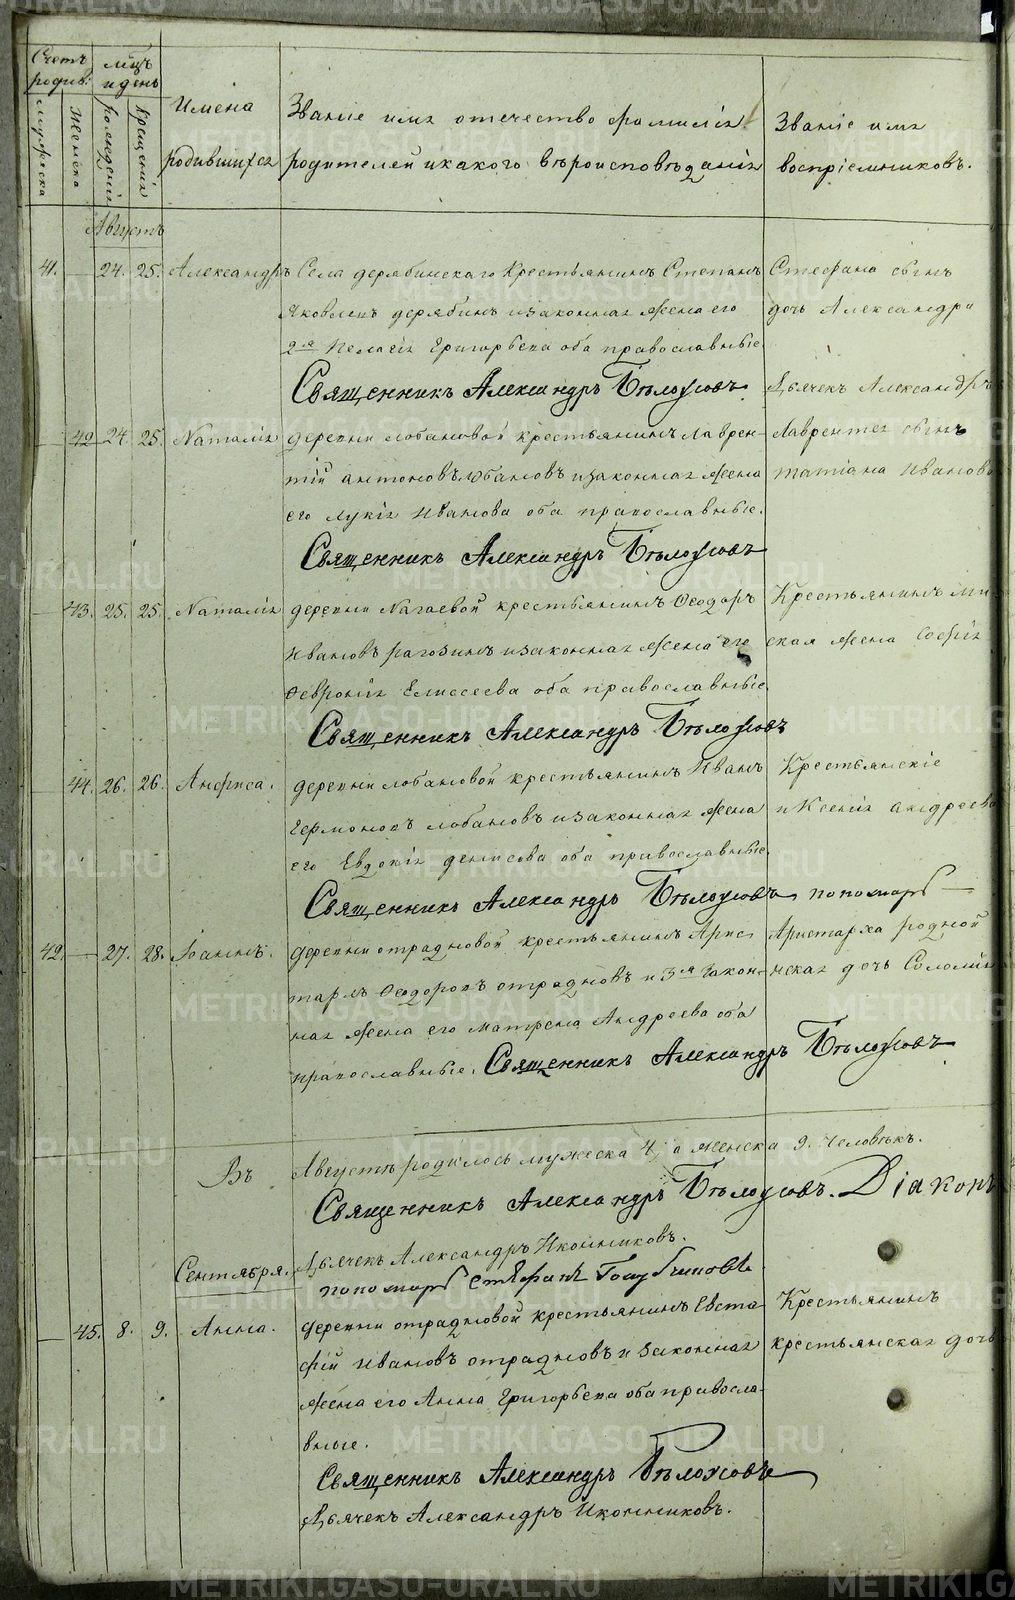 Счетъ родив:
мцъ и день
мужеска
женска
рожденія
крещенія
Имена родившихся
Званіе имя отечество фамилія родителей и какого вѣроисповѣданія
Званіе имя воспріемниковъ.
Августъ
41. — 24. 25. Александръ
Села дерябинскаго крестьянинъ Стефанъ
Яковлевъ дерябинъ и законная жена его
2я Пелагія Григорьева оба православные
Священникъ Александръ Бѣлоусовъ
Стефана сынъ
дочь Александра
Дьячекъ Александръ
— 42 24. 25. Наталія
деревни лобановой крестьянинъ лаврен-
тій антоновъ лобановъ и законная жена
его лукія Иванова оба православные.
Священникъ Александръ Бѣлоусовъ
Лаврентія сынъ
татіана Иванова
— 43. 25. 25. Наталія
деревни Нагаевой крестьянинъ Ѳеодоръ
Ивановъ рагозинъ и законная жена его
Ѳевронія Елисеева оба православные.
Священникъ Александръ Бѣлоусовъ
Крестьянинъ
ская жена Софія
— 44. 26. 26. Анфиса.
деревни лобановой крестьянинъ Иванъ
Гермоновъ лобановъ и законная жена
его Евдокія денисова оба православные.
Священникъ Александръ Бѣлоусовъ пономарь —
Крестьянскіе
и Ксенія андреева
42. — 27. 28. Іоаннъ.
деревни отрадновой крестьянинъ Арис
тархъ Ѳеодоровъ отрадновъ и 3я закон-
ная жена его матрена Андреева оба
православные. Священникъ Александръ Бѣлоусовъ
Аристарха родной
нская дочь Соломія
Въ Августѣ родилось мужеска 4, а женска 9. человѣкъ.
Священникъ Александръ Бѣлоусовъ. Діаконъ
Дьячекъ Александръ Иконниковъ.
пономарь стефанъ Голубчиковъ.
Сентября.
— 45. 8. 9. Анна.
деревни отрадновой крестьянинъ Евста
фій Ивановъ отрадновъ и законная
жена его Анна Григорьева оба правосла-
вные.
Священникъ Александръ Бѣлоусовъ
Дьячекъ Александръ Иконниковъ.
Крестьянинъ
крестьянская дочь
METRIKI.GASO-URAL.RU